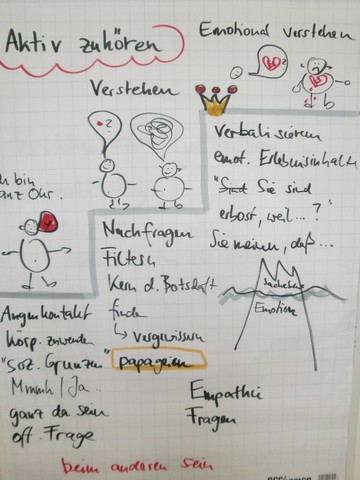 Aktiv zuhören
Emotional verstehen
Verstehen
?
?
ch bin
anz Ohr.
Verbalisieren
emot. Erlebnisinhalt
"Sind Sie sind
erbost, weil...?"
Sie meinen, daß...
Nachfragen
Filtern
Kern d. Botschaft
finden
↳ vergewissern
papageien
Sachebene
Emotion
Augenkontakt
körp. zuwenden
"Soz. Grunzen"
Mmmh / Ja..
ganz da sein
off. Frage
Empathie
Fragen
beim anderen sein